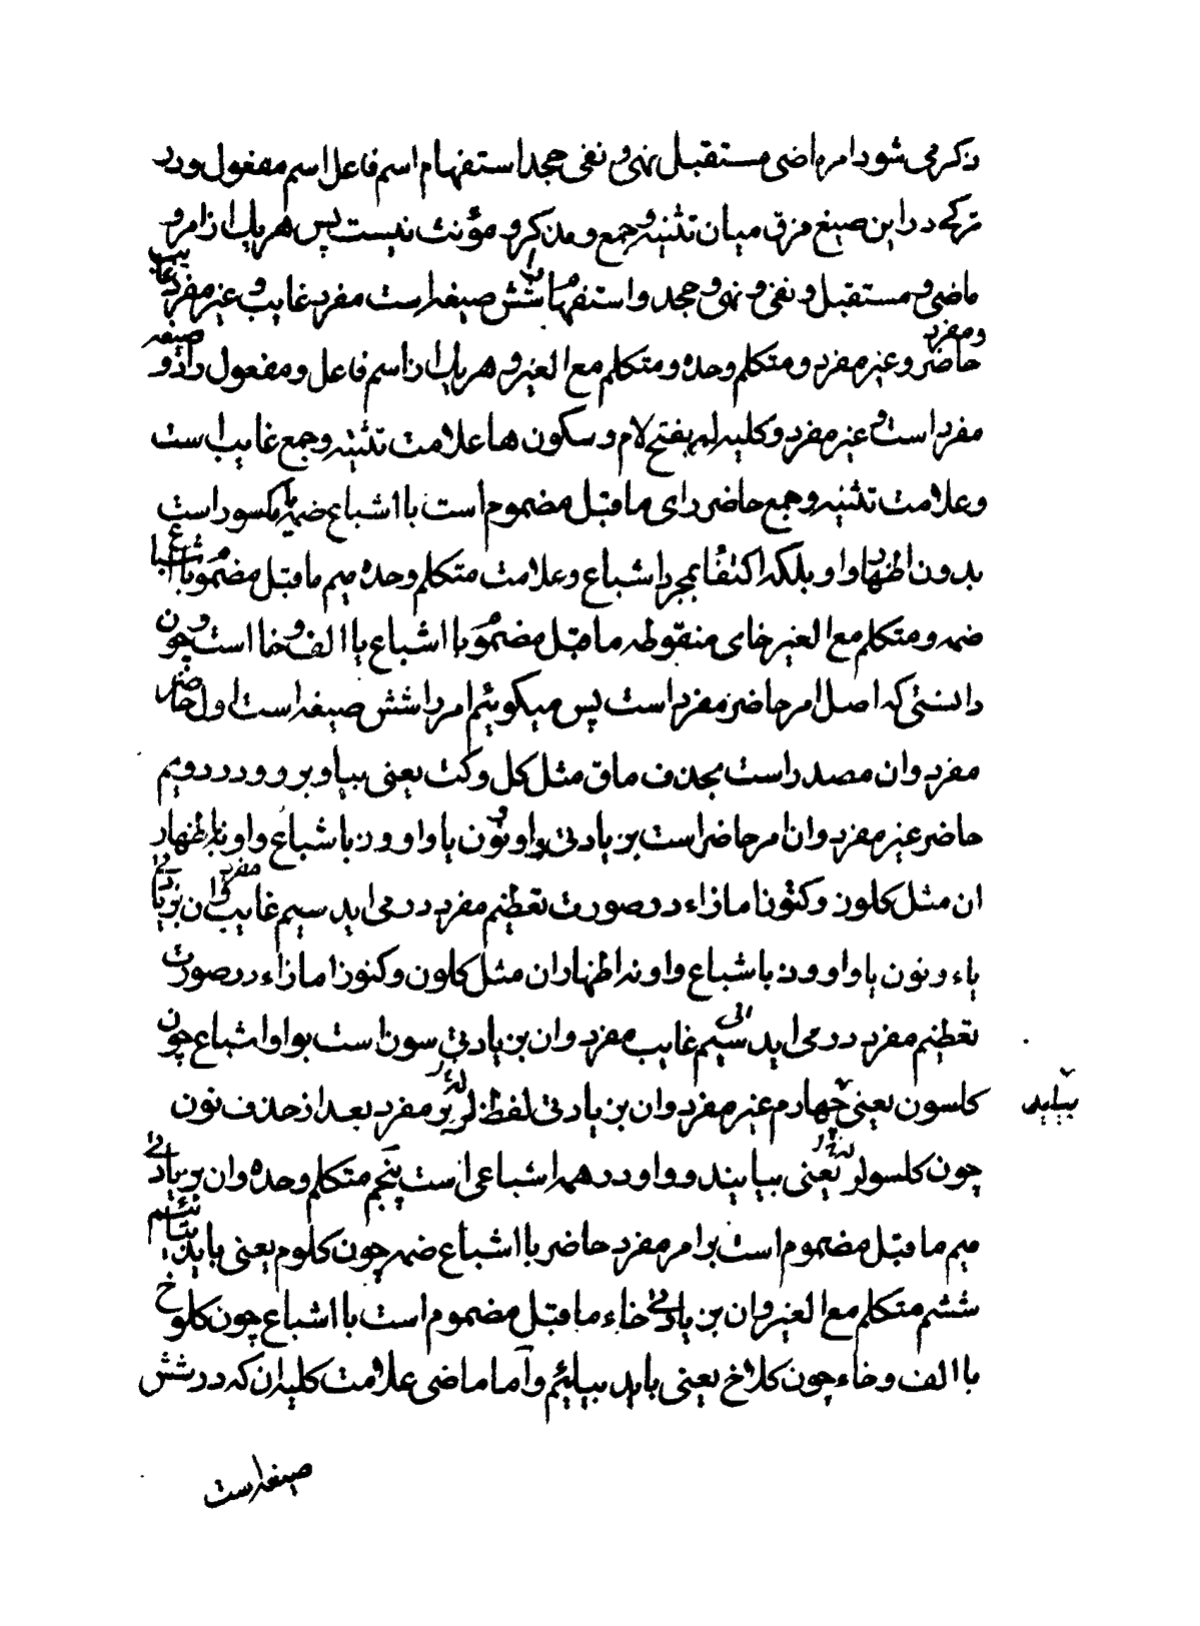 ذکر می شود امر ماضی مستقبل نهی و نفی جحد استفهام اسم فاعل اسم مفعول و در
ترکی در این صیغ فرق میان تثنیه و جمع و مذکر و مؤنث نیست پس هر یک از امر و
ماضی و مستقبل و نفی و نهی و جحد و استفهام را شش صیغه است مفرد غایب و غیر مفرد غایب
و مفرد حاضر و غیر مفرد و متکلم وحده و متکلم مع الغیر و هر یک از اسم فاعل و مفعول را دو صیغه
مفرد است و غیر مفرد و کلیه لر بفتح لام و سکون ها علامت تثنیه و جمع غایب است
و علامت تثنیه و جمع حاضر زای ما قبل مضموم است با اشباع ضمه یا مکسور است
بدون اظهار واو بلکه اکتفا بمجرد اشباع و علامت متکلم وحده میم ما قبل مضموم با اشباع
ضمه و متکلم مع الغیر خای منقوطه ما قبل مضموم با اشباع یا الف و خا است و چون
دانستی که اصل امر حاضر مفرد است پس میکوئیم امر را شش صیغه است اول حاضر
مفرد و ان مصدر است بحذف ماق مثل کل و کت یعنی بیا و برو و در دویم
حاضر غیر مفرد و ان امر حاضر است بزیادتی واو و نون یا واو و ز باشباع واو نه باظهار
ان مثل کلون و کتون اما زاء در صورت تعظیم مفرد در می اید سیم غایب مفرد و ان بزیادتی
یاء و نون یا واو و ز باشباع واو نه اظهار ان مثل کلون و کتوز اما زاء در صورت
تعظیم مفرد در می اید سیم غایب مفرد و ان بزیادتی سون است بواو اشباع چون
کلسون یعنی بیاید چهارم غیر مفرد و ان بزیادتی لفظ لر بر مفرد بعد از حذف نون
چون کلسولر یعنی بیایند و واو در همه اشباعی است پنجم متکلم وحده و ان بزیادتی
میم ما قبل مضموم است بر امر مفرد حاضر با اشباع ضمه چون کلوم یعنی باید بیایم
ششم متکلم مع الغیر و ان بزیادتی خاء ما قبل مضموم است با اشباع چون کلوخ
یا الف و خاء چون کلاخ یعنی باید بیائیم و اما ماضی علامت کلیه ان که در شش
صیغه است